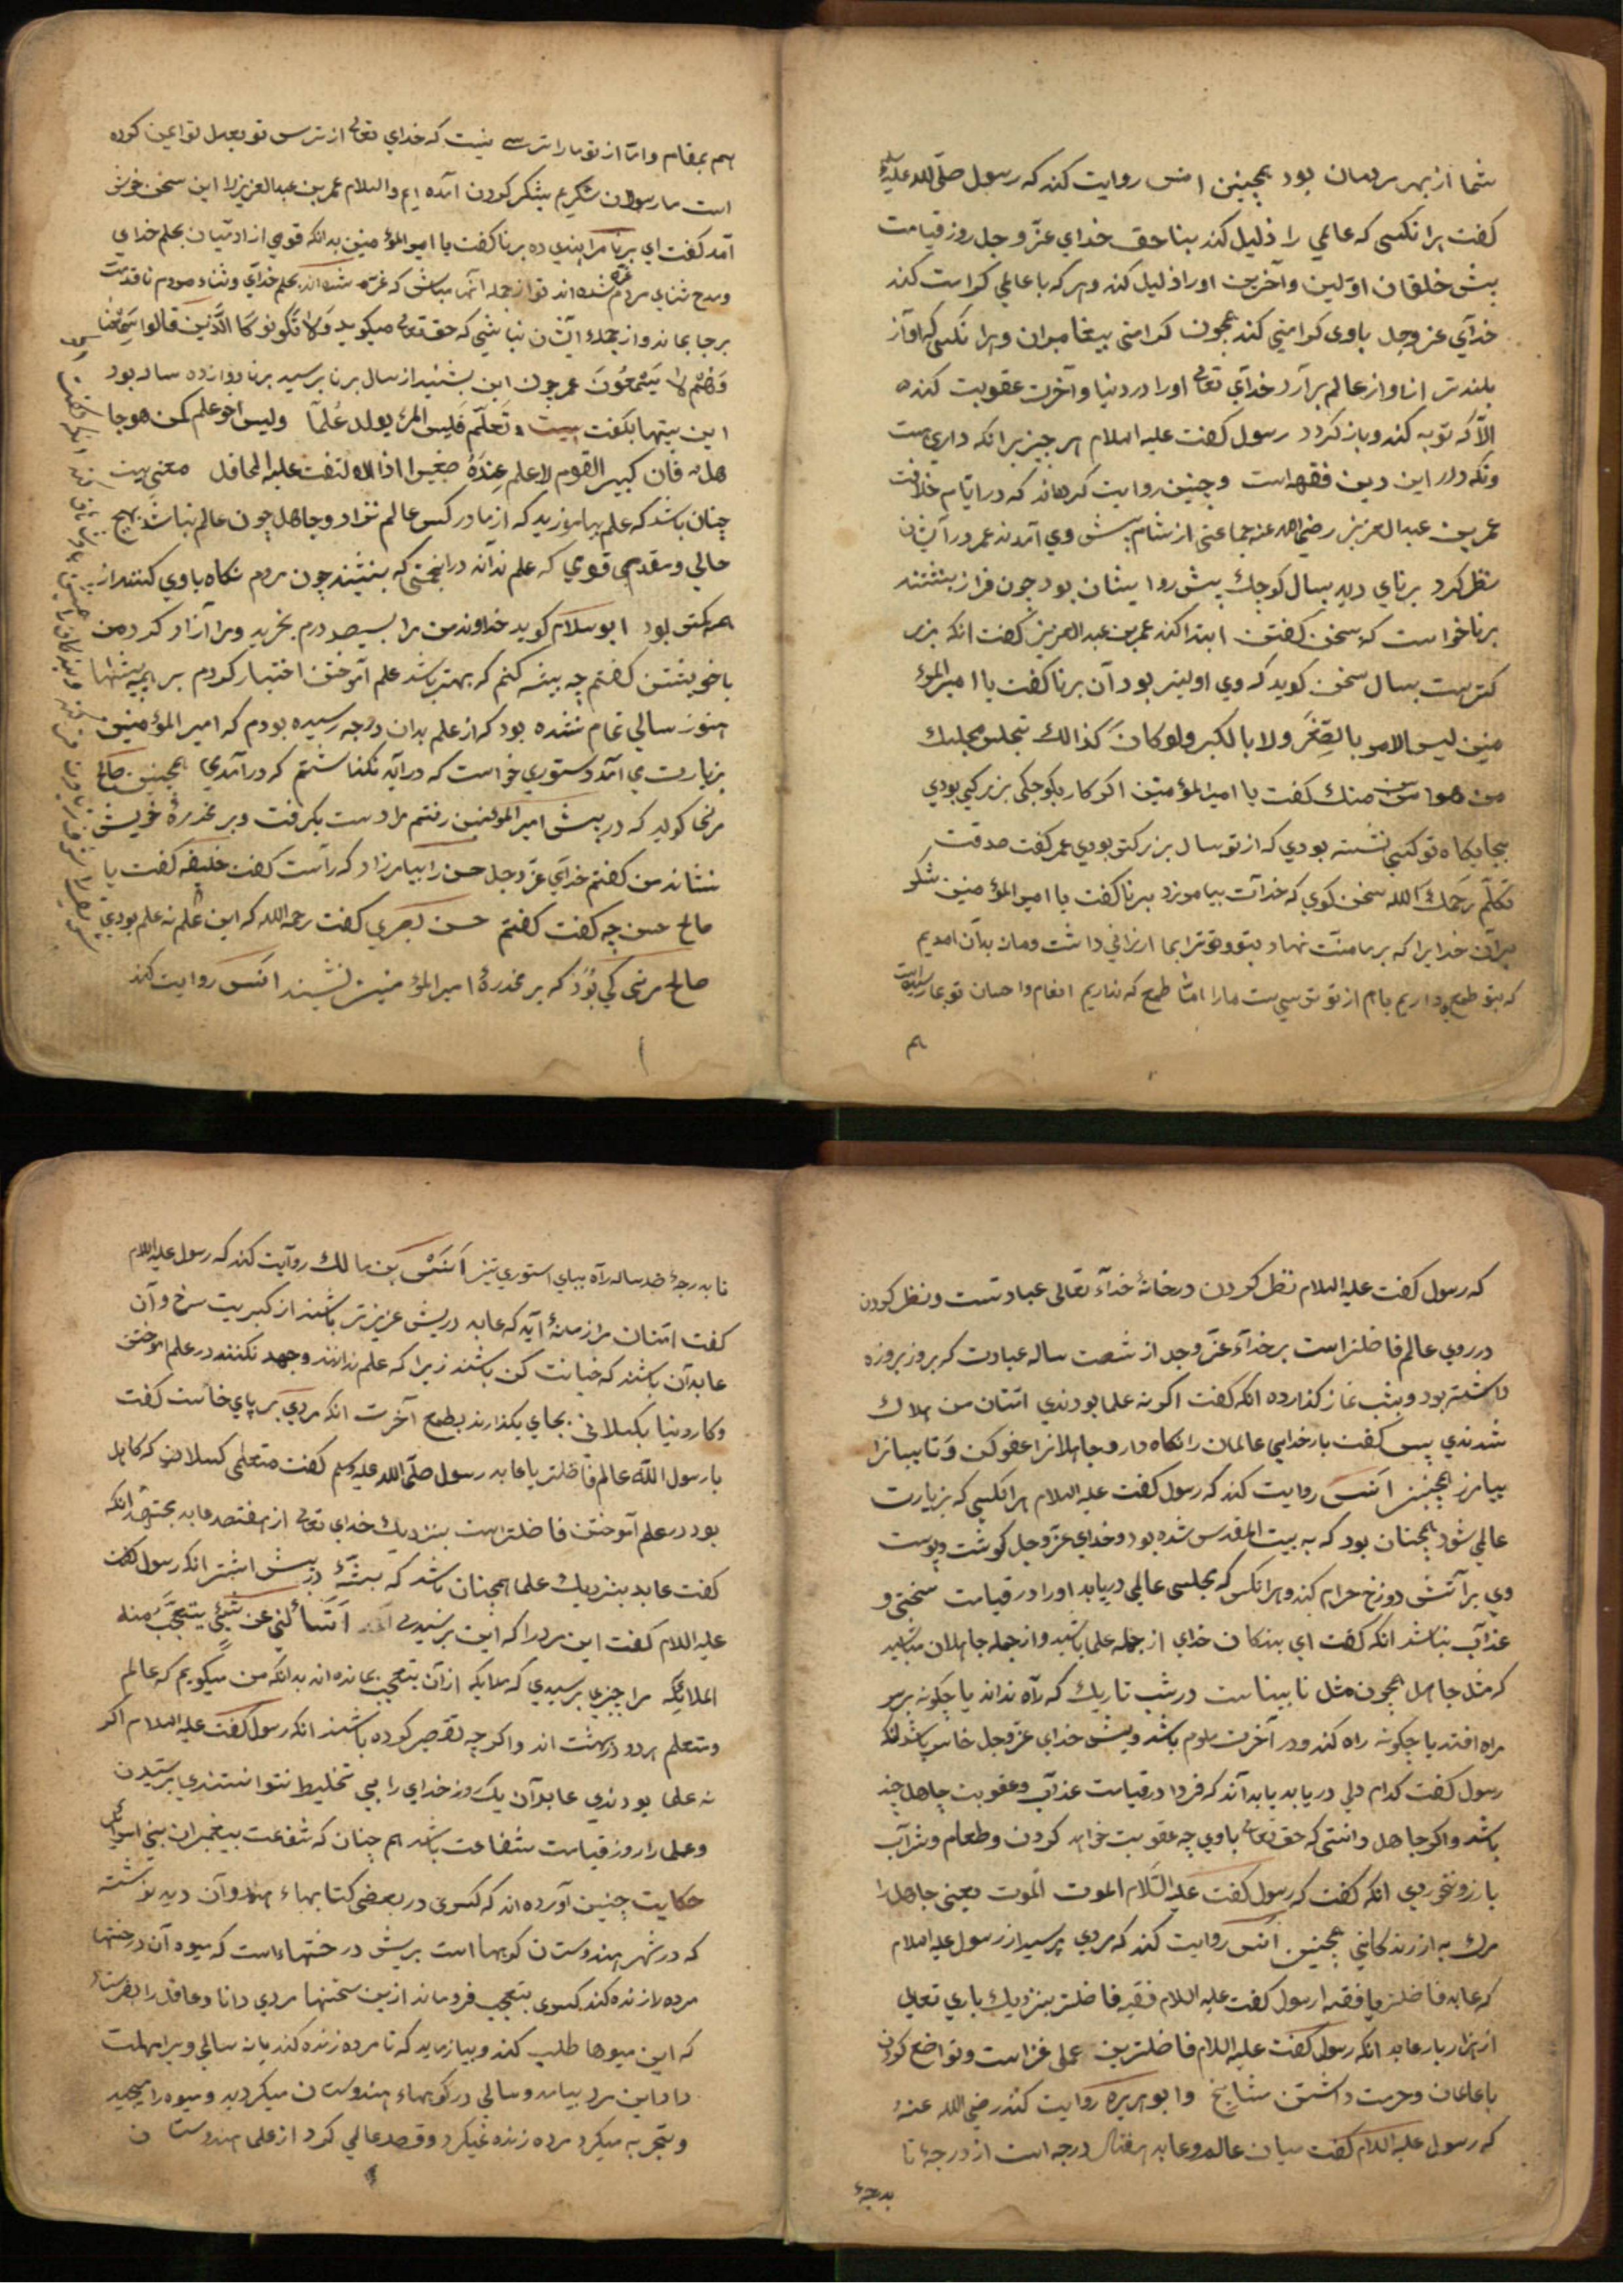 شما از بهر سرهمان بود همچنین انس روایت کند که رسول صلّی الله علیه
کفت هرانکسی که عالمی را ذلیل کند بناحق خدای عزّ وجل روز قیامت
پیش خلقان اوّلین وآخرین اورا ذلیل کند وهرکه با عالمی کرامت کند
خدآی عز وجل باوی کرامتی کند همچون کرامتی پیغامبران وهرانکس که آواز
بلندتر از اواز عالم برآرد خدآی تعالی اورا در دنیا وآخرت عقوبت کند
الّا که توبه کند وباز کردد رسول کفت علیه السلام هر چیز برانکه داری هست
وتکه دار این دین فقه است وچنین روایت کرده‌اند که در ایّام خلافت
عمر بن عبد العزیز رضی الله عنه جماعتی از شام پیش وی آمدند عمر در آیشان
نظر کرد برنای دید بسال کوچك پیش رو ایشان بود چون فراز بنشتند
برنا خواست که سخن کفتن ابتدا کند عمر بن عبد العزیز کفت انکه بزر
کترست بسال سخن کوید که وی اولیتر بود آن برنا کفت یا امیر المؤ
منین لیس الامر بالصِغَر ولا بالکبر ولو کان کذالك تجلس مجلسك
من هو اسن منك کفت یا امیر المؤمنین اکر کار بکوچکی بزرکی بودی
بجایکاه تو کسی نشسته بودی که از تو بسال بزرکتر بودی عمر کفت صدقت
تکلّم رحمك الله سخن کوی که خدآت بیاموزد برنا کفت یا امیر المؤمنین شکر
مرآن خدایرا که برما منّت نهاد بتو وتو ترا بما ارزانی داشت ومان بدآن امدیم
که بتو طمع داریم یا هم از تو ترسی ست مارا امّا طمع که نداریم انعام واحسان تو بما رسیده است
هم
هم بمقام وامّا از تو مارا ترسی نیست که خدای تعالی از ترس تو بعدل تو ایمن کرده
است ما رسولان شکریم بشکر کردن آمده ایم والسلام عمر بن عبد العزیز را این سخن خوش
آمد کفت ای برنا مرا پندی ده برنا کفت یا امیر المؤمنین بدانکه قومی از ادمیان بحلم خدای
ومدح ثنای مردم غرّه شده اند تو از جمله آنها مباش که غرّه شده اند بحلم خدآی وثناء مردم تا قدمت
برجا بماند واز جملهٔ ایشان نباشی که حق تعالی میکوید وَلا تَکُونُو کَا الَّذینَ قالوا سَمِعْنا
وَهُمْ لا یَسْمَعُونَ عمر چون این بشنید از سال برنا پرسید برنا دوازده ساله بود
این بیتها بکفت بیت تَعَلّم فَلَیس المرئ یولد عُلماً ولیس اخو علم کمن هو جا
هل فان کبیر القوم لا علم عِندَهُ صغیر اذا التفت علیه المحافل معنی بیت
چنان باشد که علم بیاموزید که از مادر کس عالم نزاد وجاهل چون عالم نباشد بهیچ
حالی ومقدم قومی که علم نداند در انجمنی که بنشیند چون مردم نکاه باوی کنند از
همه کمتر بود ابو سلام کوید خداوند من مرا بسیصد درم بخرید ومرا آزاد کرد من
با خویشتن کفتم چه پیشه کنم که بهتر باشد علم آموختن اختیار کردم بر همه پیشها
هنوز سالی تمام نشده بود که از علم بدان درجه رسیده بودم که امیر المؤمنین
بزیارت می آمد دستوری خواست که درآید نکذاشتم که درآمدی همچنین صالح
مرغی کوید که در پیش امیر المؤمنین رفتم مرا دست بکرفت وبر مخدرهٔ خویش
بنشاند من کفتم خدآی عزّ وجل حسن را بیامرزاد که رآست کفت خلیفه کفت یا
صالح حسن چه کفت کفتم حسن بصری کفت رحمه الله که این علم نه علم بودی
صالح مرغی کی بُوَذ که بر مخدرهٔ امیر المؤمنین نشیند انس روایت کند
که رسول کفت علیه السلام نظر کردن درخانهٔ خدآء تعالی عبادتست ونظر کردن
در روی عالم فاضلتراست برخدآء عزّ وجل از شصت ساله عبادت که بروز بروزه
داشته بود وبشب نماز کذارده انکه کفت اکر نه علما بودندی امّتان من هلاك
شدندی پس کفت بار خدایی عالمان را نکاه دار وجاهلانرا عفو کن وتایبانرا
بیامرز همچنین انس روایت کند که رسول کفت علیه السلام هرانکسی که بزیارت
عالمی شود همچنان بود که به بیت المقدس شده بود وخدای عزّ وجل کوشت وپوست
وی بر آتش دوزخ حرام کند وهرانکس که مجلسی عالمی دریابد اورا در قیامت سختی و
عذآب نباشد انکه کفت ای بندکان خدای از جمله علما باشید واز جمله جاهلان مباشید
که مثل جاهل همچون مثل نابیناست در شب تاریك که رآه نداند یا چکونه برسر
راه افتد یا چکونه راه کند ودر آخرت ملوم باشد وپیش خدای عزّ وجل خاسر باشد انکه
رسول کفت کدام دلی دریابد یا بداند که فردا در قیامت عذآب وعقوبت جاهل چند
باشد واکر جاهل دانستی که حق تعالی باوی چه عقوبت خواهد کردن وطعام وشرآب
بارزو نخوردی انکه کفت که رسول کفت علیه السّلام الموت الموت یعنی جاهل را
مرك به از زندکانی همچنین انس روایت کند که مردی پرسید از رسول علیه السلام
که عابد فاضلتر یا فقیه رسول کفت علیه السلام فقیه فاضلتر بنزدیك باری تعالی
از هزار بار عابد انکه رسول کفت علیه السلام فاضلترین عملی غزاست وتواضع کردن
با عالمان وحرمت داشتن مشایخ وابو هریره روایت کند رضی الله عنهُ
که رسول علیه السلام کفت میان عالم وعابد هفتاد درجه است از درجهٔ تا
بدرجهٔ
تا بدرجهٔ صد ساله رآه بپای استوری تیز اَنَسْ بن مالك روآیت کند که رسول علیه السلام
کفت امّتان مرا زمانهٔ آید که عابد دریش عزیزتر باشند از کبریت سرخ وآن
عابدآن باشند که خیانت کن باشند زیرا که علم ندانند وجهد نکنند در علم آموختن
وکار دنیا بکسلانی بجای بکذارند بطمع آخرت انکه مردی بر پای خاست کفت
یا رسول اللّه عالم فاضلتر یا عابد رسول صلّی الله علیه وسلم کفت متعلمی کسلان که کاهل
بود در علم آموختن فاضلتراست بنزدیك خدای تعالی از هفتصد عابد مجتهد انکه
کفت عابد بنزدیك علما همچنان باشد که پشّهٔ در پیش اشتر انکه رسول کفت
علیه السلام کفت این مرد را که این پرسیدی اَتَسْاَلُنی عن شَیْئٍ یتعجّبَ منه
الملایکه مرا چیزی پرسیدی که ملایکه ازآن بتعجب بمانده اند بدانکه من میکویم که عالم
ومتعلم هردو در بهشت اند واکرچه تقصیر کرده باشند انکه رسول کفت علیه السلام اکر
نه علما بودندی عابدآن یك روز خدای را بی تخلیط نتوانستندی پرستیدن
وعلما را روز قیامت شفاعت باشد هم چنان که شفاعت پیغمبران بنی اسرائیل
حکایت چنین آورده اند که کسری در بعضی کتابهاء هندوآن دید نوشته
که در شهر هندوستان کوبها است برش درختهاء است که میوه آن درختها
مرده را زنده کند کسری بتعجب فروماند ازین سخنها مردی دانا وعاقل را بفرستاد
که این میوها طلب کند وبیازماید که تا مرده زنده کند یا نه سالی ویرا مهلت
داد این مرد بیامد وسالی در کوبهاء هندوستان میکردید ومیوه را میچید
وتجربه میکرد مرده زنده نمیکرد وقصد عالمی کرد از علما هندوستان